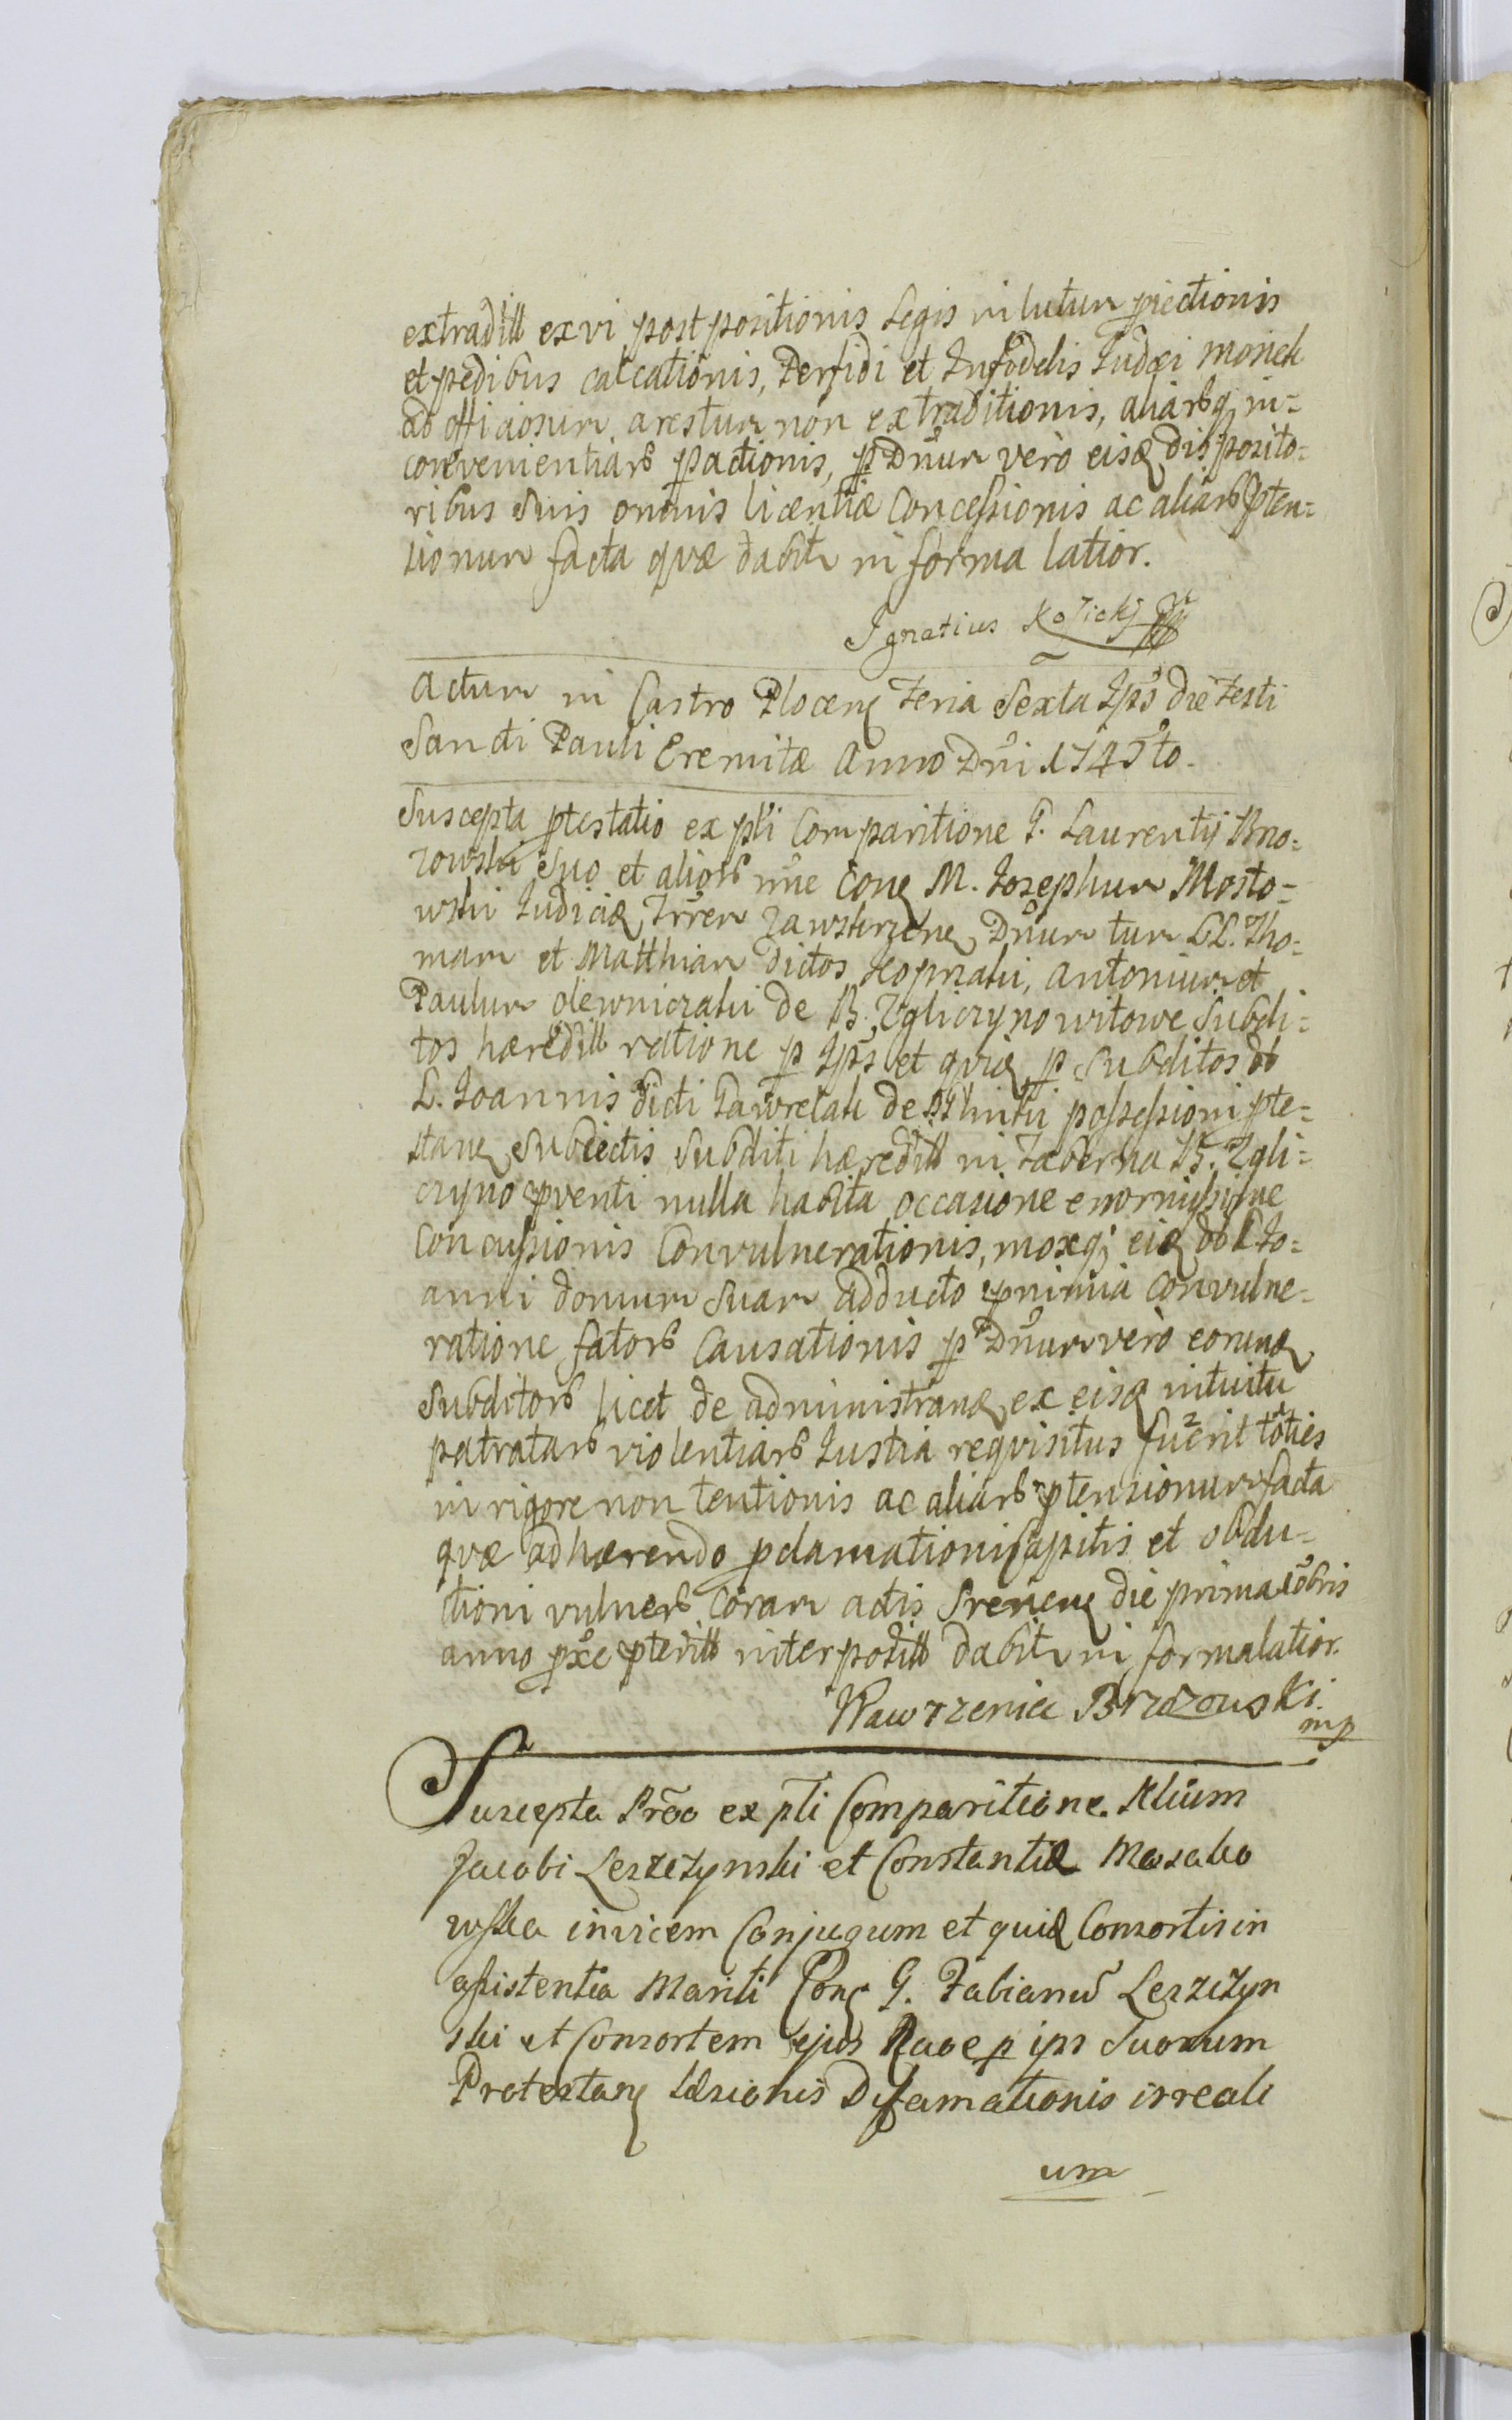 extraditt ex vi postpositionis Legis in lutum piectionis
et pedibus calcationis, Perfidi et Infidelis Judæi Moriek
ad officiosum arestum non extraditionis, aliarq; in=
convenientiar pactionis, p Dnum vero eisq disposito=
ribus suis omnis licentiæ Concessionis ac aliar pten=
sionum facta quæ dabit in forma latior.
Ignatius Kozicki
Actum in Castro Plocen Feria Sexta Ips die Festi
Sancti Pauli Eremitæ Anno Dni 1745to.
Suscepta ptestatio ex pti Comparitione G. Laurentij Brzo=
zowski suo et alior nne Con M. Josephum Mosto=
wski Judic Trren Zawskrzen Dnum tum LL. Tho=
mam et Matthiam dictos, Antonium et
Paulum Olewniczaki de B. Zgliczyno witowe Subdi=
tos hæreditt ratione p Ips et qui p Subditos ob
L. Joannis dicti Gawrelak de possessioni pte=
stan Subiectis Subditi hæreditt in Taberna B. Zgli=
czyno pventi nulla habita occasione enormissime
Concussionis Convulnerationis, moxq; ei ob L Jo=
anni domum suam adducto nimia Convulne=
ratione fator Causationis p Dnum vero eorunq
Subditor licet de administran ex eisq intuitu
patratar violentiar Justia requisitus fuerit toties
in rigore non tentionis ac aliar ptensionum facta
quæ adhærendo pclamationi Capitis et obdu=
ctioni vulner Coram actis Srenen die prima Xbris
anno pxe pteritt interpositt dabit in forma latior.
Wawrzeniec Brzozowski
mp
Suscepta Prõo ex pti Comparitione.
Jacobi Leszczynski et Constantiæ Masako
wska invicem Conjugum et quid Consortis in
assistentia Mariti Con G. Fabianu Leszczyn
ski et Consortem ejus Raoe p ips Suorum
Protestan Læsionis Diffamationis irreali
um